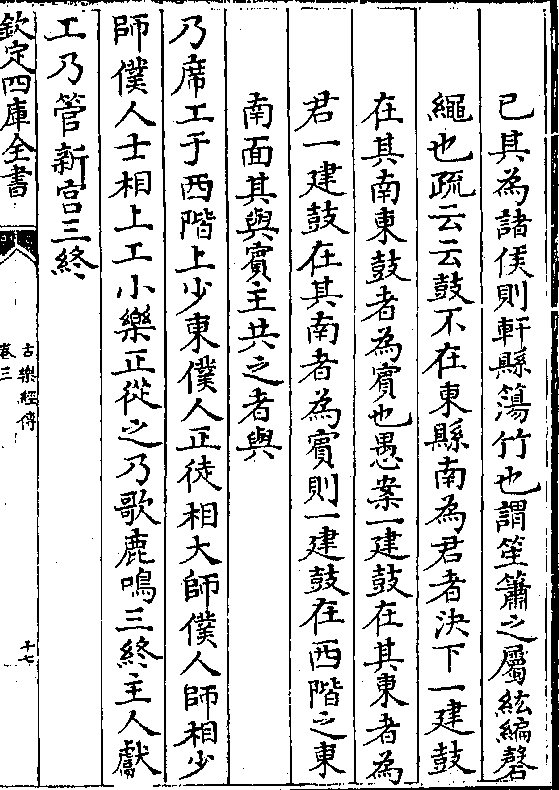 已其為諸侯則軒縣簜竹也謂笙簫之屬紘編磬
繩也疏云云鼓不在東縣南為君者決下一建鼓
在其南東鼓者為賓也愚案一建鼓在其東者為
君一建鼓在其南者為賓則一建鼓在西階之東
南面其與賓主共之者與
乃席工于西階上少東僕人正徒相大師僕人師相少
師僕人士相上工小樂正從之乃歌鹿鳴三終主人獻
工乃管新宫三終
欽定四庫全書
古樂經傳
卷三
十七